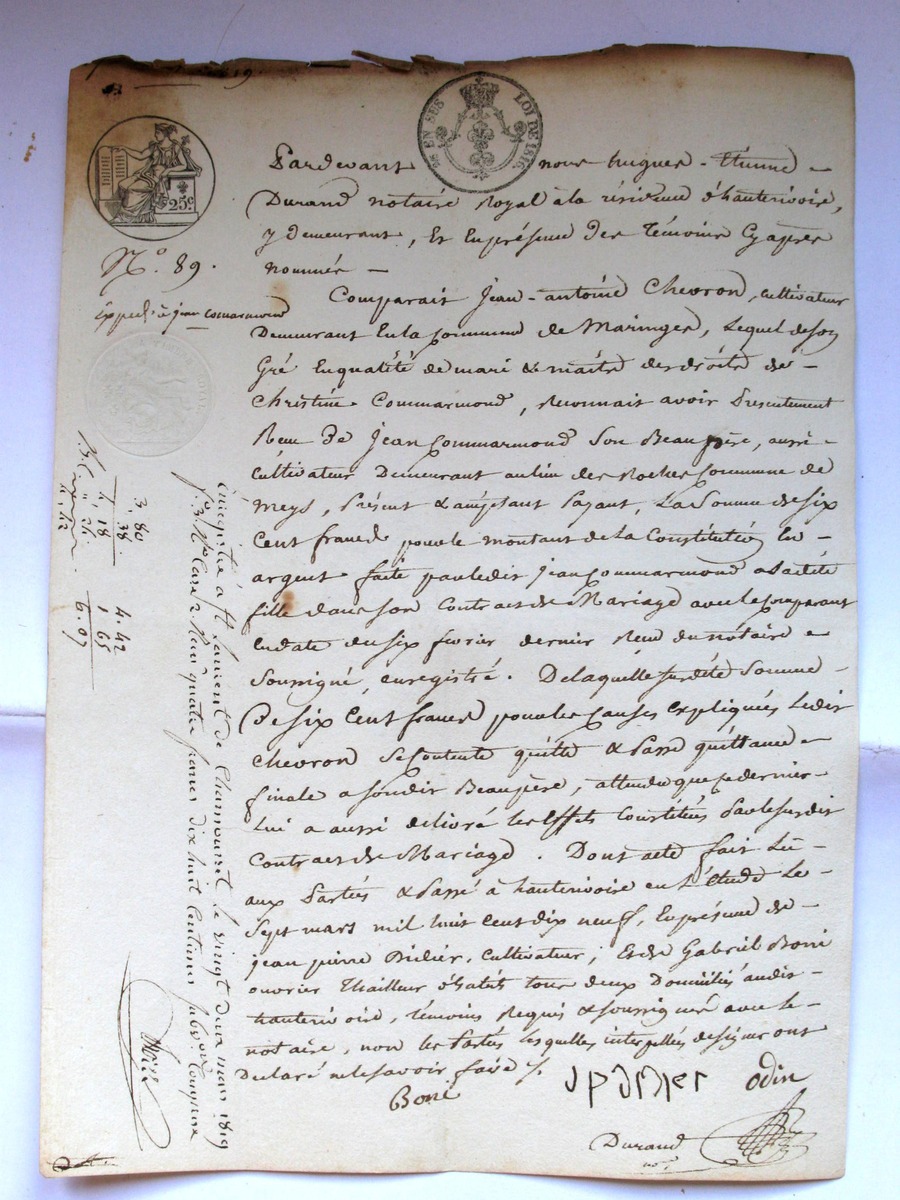 25 EN SUS LOI DE 1816.
25c
N.° 89.
Expedié à jean Comarmond
Pardevant nous hugues-Etienne
Durand notaire Royal à la résidence d'hauterivoire,
y demeurant, Et En présence des témoins Cy après
nommés
Comparait jean-antoine Chevron, cultivateur
Demeurant En la Commune de Maringes, Lequel de son
Gré En qualité de mari & maître des droits de
Christine Commarmond, Reconnait avoir Présentement
Reçu De jean Commarmond Son Beaupère, aussi
Cultivateur Demeurant au lieu des Roches Commune de
Meys, Présent & acceptant Payant, La Somme de six
Cent francs pour le montant de La Constitution En
argent faite par ledit jean Commarmond a Ladite
fille dans son Contract de Mariage avec le Comparant
En date du six février dernier Reçu du notaire
Soussigné, enregistré. De laquelle susdite Somme
De six Cent francs pour les Causes expliquées Ledit
Chevron Se Contente quitte & Passe quittance
finale a Son dit Beaupère, attendu que ce dernier
Lui a aussi délivré les Effets Constitués Par le susdit
Contract de Mariage. Dont acte fait Lu
aux Parties & Passé à hauterivoire en L'étude Le
Sept mars mil huit cent dix neuf, En présence de
jean pierre Cultivateur, Et de Gabriel Boni
ouvrier thailleur d'habits tous deux Domiciliés audit
hauterivoire, témoins Requis & Soussignés avec le
notaire, non les Parties Lesquelles interpellées de signer ont
Déclaré ne le savoir faire
Boni odin
Durand
no.re
Enregistré à St Laurent de Chamousset le vingt deux mars 1819
f.° 3 R.to Case 2 Reçu quatre francs dix huit Centimes subv.on Comprise
3, 80
, 38
4, 18
4. 42
1 65
6. 07